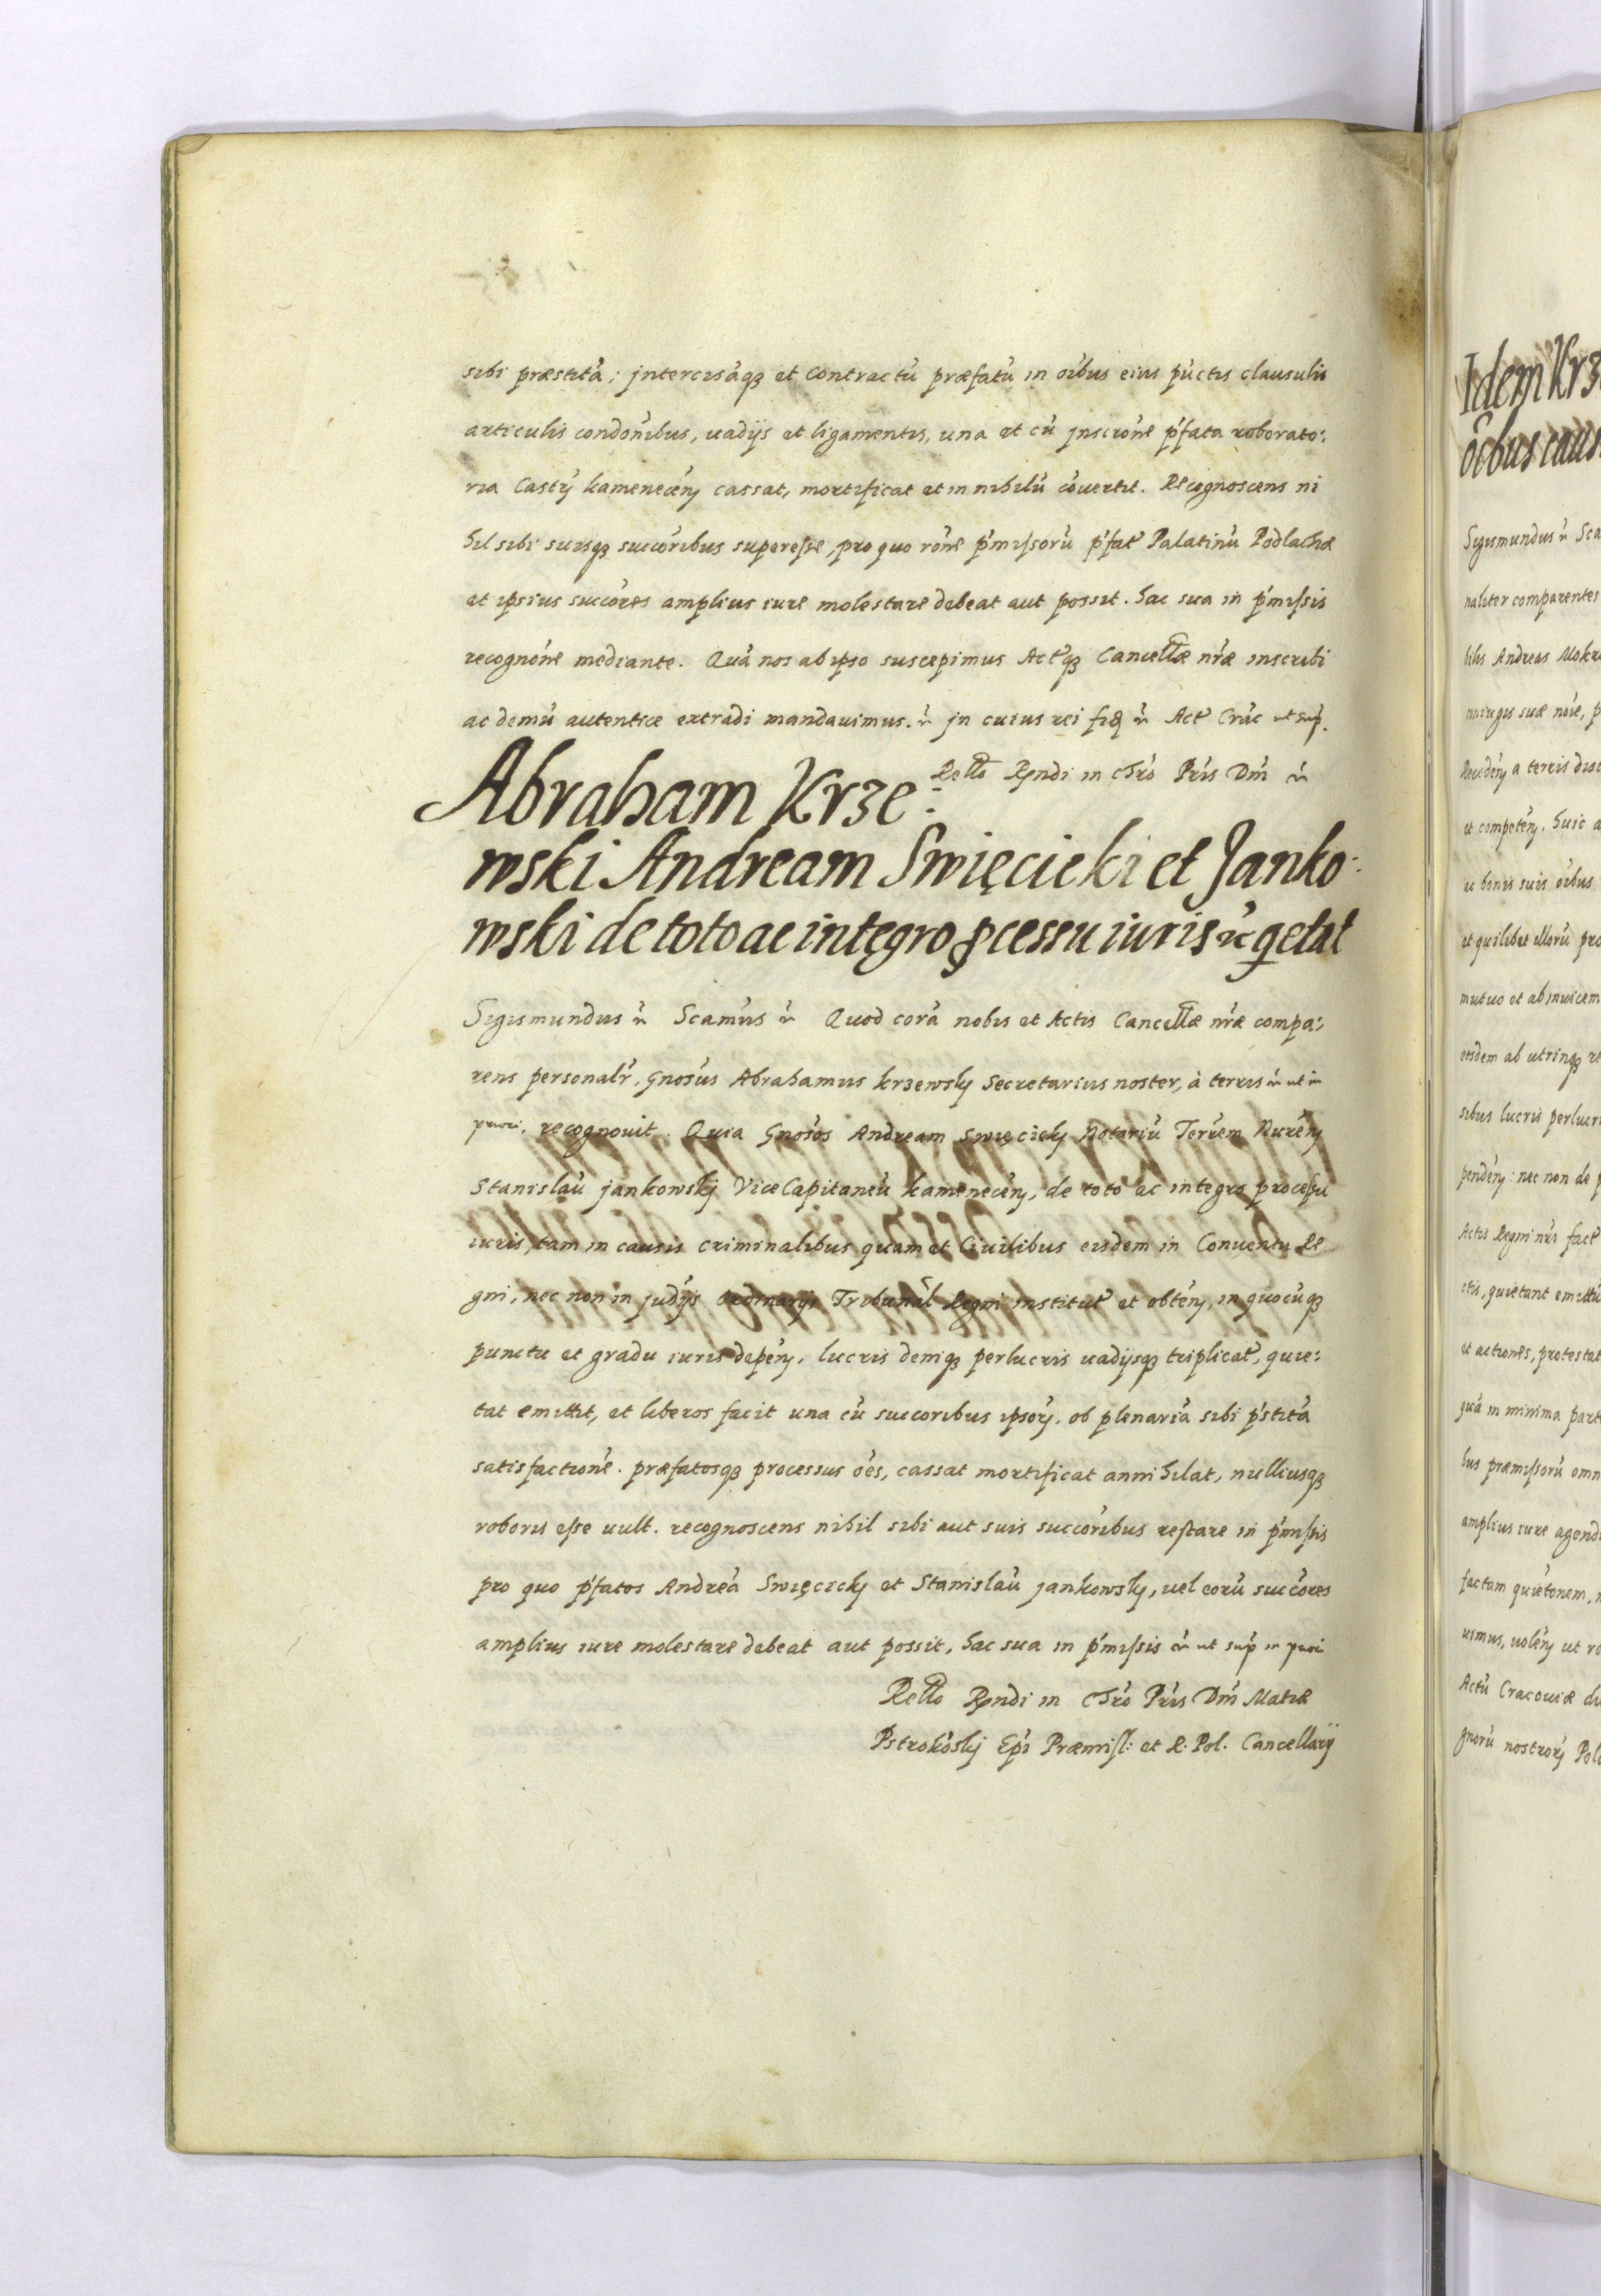 sibi præstitā; jntercisāqȝ et contractū præfatū in oībus eius pūctis clausulis
articulis condōnibus, uadijs et ligamentis, una et cū jnscrōne p̄fata roborato:
ria Castrj kamenecēn cassat, mortificat et in nihilū cōuertit. Recognoscens ni
hil sibi suisqȝ succōribus superesse, pro quo rōne p̄missorū p̄fat Palatinū Podlachiæ
et ipsius succōres amplius iure molestare debeat aut possit. hac sua in p̄missis
recognōne mediante. Quā nos ab ipso suscepimus Actqȝ Cancellæ nræ inscribi
ac demū autentice extradi mandauimus. etc jn cuius rei fid etc Act Crac ut sup.
Rello Rndi in Chro Pris Dni etc
Abraham Krze:
wski Andream Swięcicki et Janko:
wski de toto ac integro ꝓcessu iuris etc qetat
Sigismundus etc Scamus etc Quod corā nobis et Actis Cancellæ nræ compa:
rens personalr. Gnosus Abrahamus krzewskj Secretarius noster, à terris etc ut in
priori. recognouit. Quia Gnosos Andream Swięcickj Notariū Terrem Nurēn
Stanislaū jankowskj ViceCapitaneū kamenecēn, de toto ac integro processu
iuris, tam in causis criminalibus quam et Ciuilibus eisdem in Conuentu Re
gni, nec non in judijs ordinarijs Tribunal Regni institut et obtēn, in quocūqȝ
punctu et gradu iuris depēn. lucris deniqȝ perlucris uadijsqȝ triplicat, quie:
tat emittit, et liberos facit una cū succoribus ipsorj. ob plenariā sibi p̄stitā
satisfactionē. præfatosqȝ processus oēs, cassat mortificat annihilat, nulliusqȝ
roboris esse uult. recognoscens nihil sibi aut suis succōribus restare in p̄missis
pro quo p̄fatos Andreā Swięcickj et Stanislaū jankowskj, uel eorū succōres
amplius iure molestare debeat aut possit, hac sua in p̄missis etc ut sup in priori
Rello Rndi in Chro Pris Dni Matiæ
Pstrokōskj Epi Præmisl: et R. Pol. Cancellarij
Idem Krz
oībus caus
Sigismundus etc Sca
naliter comparentes
bilis Andreas Mokr
coniugis suæ nōie, p
Recedēn a terris dis
et competēn. huic a
ac bonis suis oībus
et quilibet illorū pro
mutuo et ab inuicem
eisdem ab utrinqȝ re
sibus lucris perlucri
pendēn: nec non de p
Actis Regni nri fact
ctis, quietant emittū
et actiones, protestat
quā in minima part
bus præmissorū omn
amplius iure agendi
factam quietonem, n
uimus, uolēn ut ro
Actū Cracouiæ di
gnorū nostrorj Polo